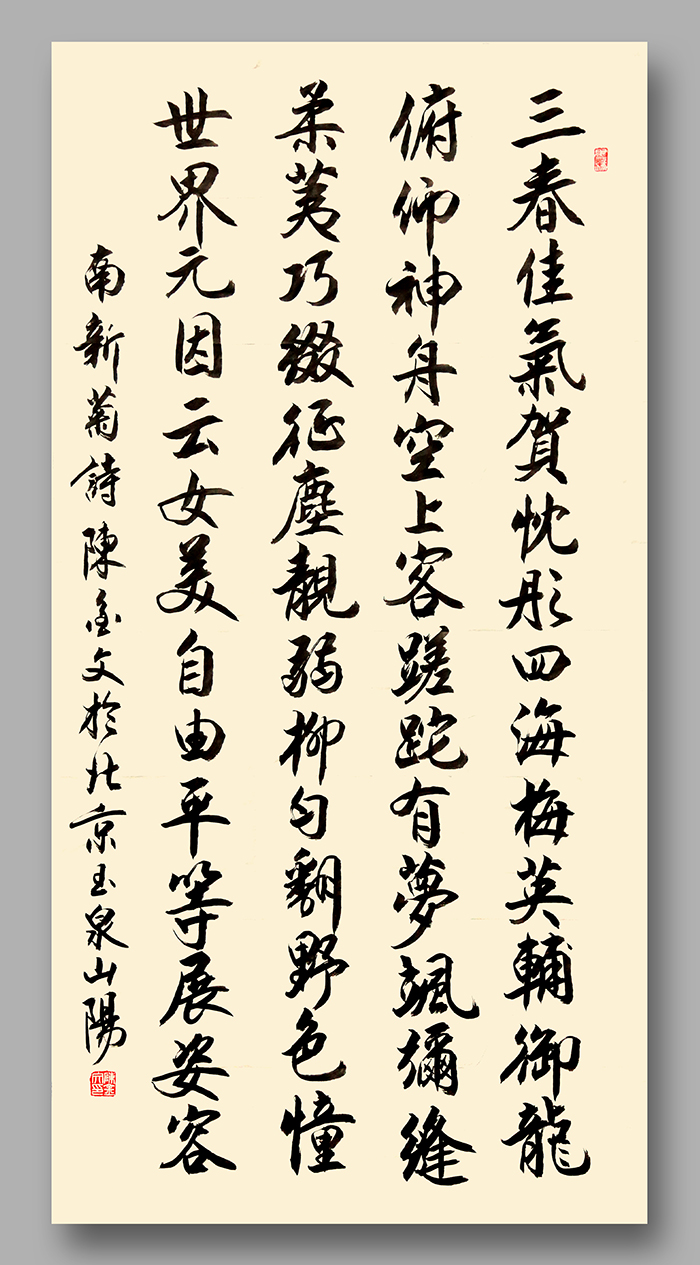 三春佳氣賀忱彤四海梅英輔御龍
俯仰神舟空上客蹉跎有夢颯彌縫
柔荑巧綴征塵靚弱柳匀翻野色憧
世界元因云女美自由平等展姿容
南新菊詩陳金文於北京玉泉山陽